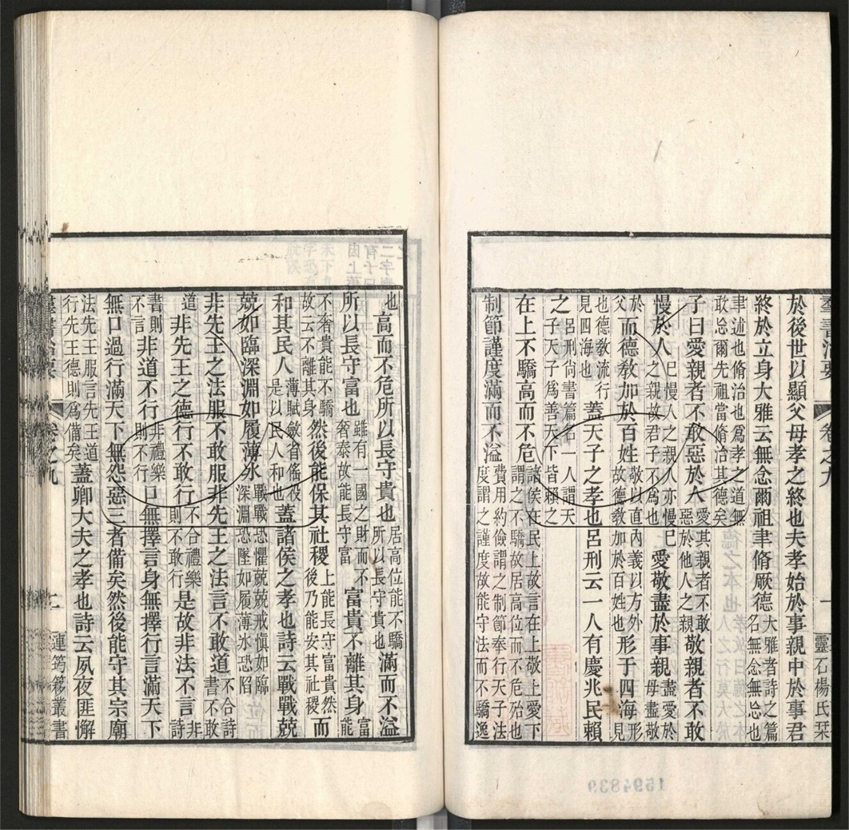 羣書治要 卷之九 一 靈石楊氏栞
於後世以顯父母孝之終也夫孝始於事親中於事君
終於立身大雅云無念爾祖聿脩厥德大雅者詩之篇名無念無忘也
聿述也脩治也爲孝之道無敢忘爾先祖當脩治其德矣
子曰愛親者不敢惡於人愛其親者不敢惡於他人之親敬親者不敢
慢於人己慢人之親人亦慢己之親故君子不爲也愛敬盡於事親盡愛於母盡敬於
父而德敎加於百姓敬以直內義以方外故德敎加於百姓也形于四海形見
也德敎流行見四海也蓋天子之孝也呂刑云一人有慶兆民賴
之呂刑尚書篇名一人謂天子天子爲善天下皆賴之
在上不驕高而不危諸侯在民上故言在上敬上愛下謂之不驕故居高位而不危殆也
制節謹度滿而不溢費用約儉謂之制節奉行天子法度謂之謹度故能守法而不驕逸
也高而不危所以長守貴也居高位能不驕所以長守貴也滿而不溢
所以長守富也雖有一國之財而不奢泰故能長守富富貴不離其身富能
不奢貴能不驕故云不離其身然後能保其社稷上能長守富貴然後乃能安其社稷而
和其民人薄賦斂省徭役是以民人和也蓋諸侯之孝也詩云戰戰兢
兢如臨深淵如履薄冰戰戰恐懼兢兢戒愼如臨深淵恐墜如履薄冰恐陷
非先王之法服不敢服非先王之法言不敢道不合詩書不敢
道非先王之德行不敢行不合禮樂則不敢行是故非法不言非詩
書則不言非道不行非禮樂則不行口無擇言身無擇行言滿天下
無口過行滿天下無怨惡三者備矣然後能守其宗廟
法先王服言先王道行先王德則爲備矣蓋卿大夫之孝也詩云夙夜匪懈
羣書治要 卷之九 二 連筠簃叢書
1594839